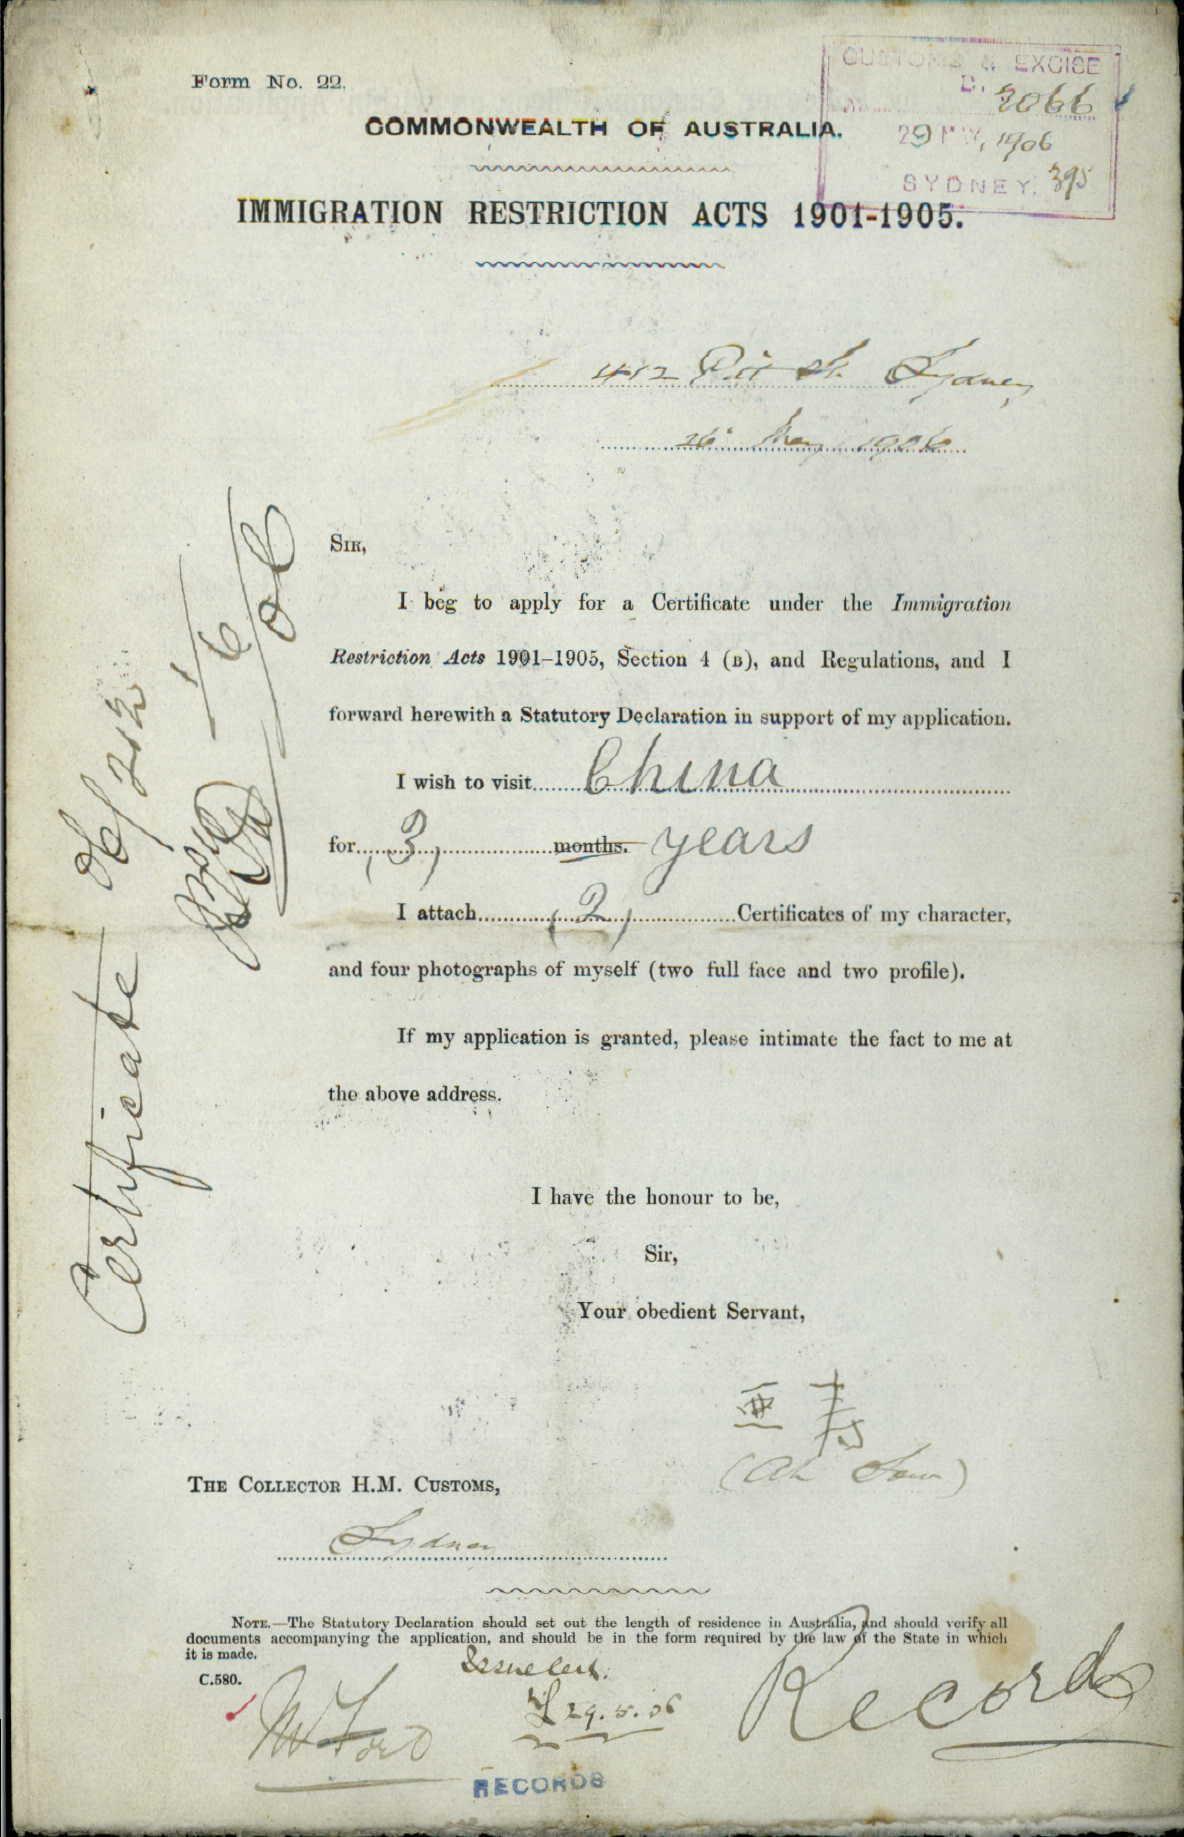 Form No. 22.
CUSTOMS & EXCISE
D. 2066
29 MY. 1906
SYDNEY. 395
COMMONWEALTH OF AUSTRALIA.
IMMIGRATION RESTRICTION ACTS 1901-1905.
412 Pitt St. Sydney,
26 May 1906
SIR,
I beg to apply for a Certificate under the Immigration
Restriction Acts 1901-1905, Section 4 (B), and Regulations, and I
forward herewith a Statutory Declaration in support of my application.
I wish to visit China
for (3) months. years
I attach (2) Certificates of my character,
and four photographs of myself (two full face and two profile).
If my application is granted, please intimate the fact to me at
the above address.
I have the honour to be,
Sir,
Your obedient Servant,
亞
(Ah
THE COLLECTOR H.M. CUSTOMS,
Sydney
NOTE.—The Statutory Declaration should set out the length of residence in Australia, and should verify all
documents accompanying the application, and should be in the form required by the law of the State in which
it is made.
C.580.
Issue Cert.
29.5.06
Records
RECORDS
Certificate 06/212
1/6/06